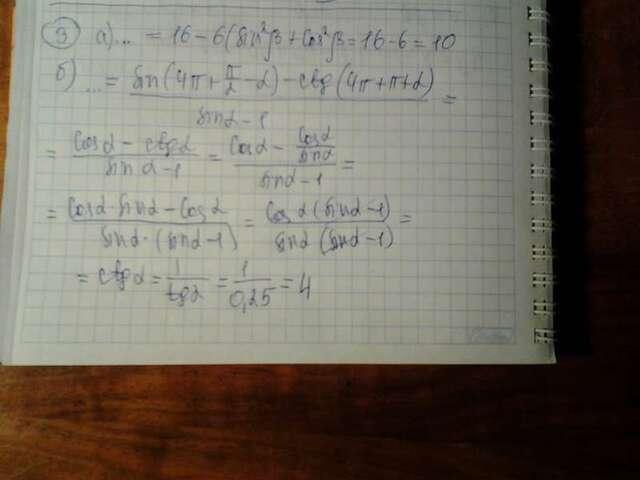 3) а)... = 16 - 6(sin²β + cos²β = 16 - 6 = 10
б) ... = sin(4π + π/2 - α) - ctg(4π + π + α) / sinα - 1 =
= cosα - ctgα / sinα - 1 = cosα - cosα/sinα / sinα - 1 =
= cosα·sinα - cosα / sinα·(sinα - 1) = cosα(sinα - 1) / sinα(sinα - 1) =
= ctgα = 1/tgα = 1/0,25 = 4